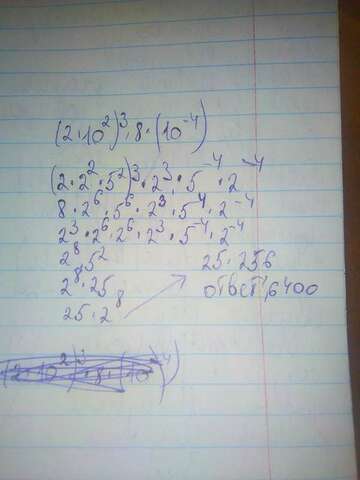 (2·10²)³·8·(10⁻⁴)
(2·2²·5²)³·2³·5⁻⁴·2⁻⁴
8·2⁶·5⁶·2³·5⁻⁴·2⁻⁴
2³·2⁶·2⁶·2³·5⁻⁴·2⁻⁴
2⁸·5²
2⁸·25
25·2⁸
25·256
ответ 6400